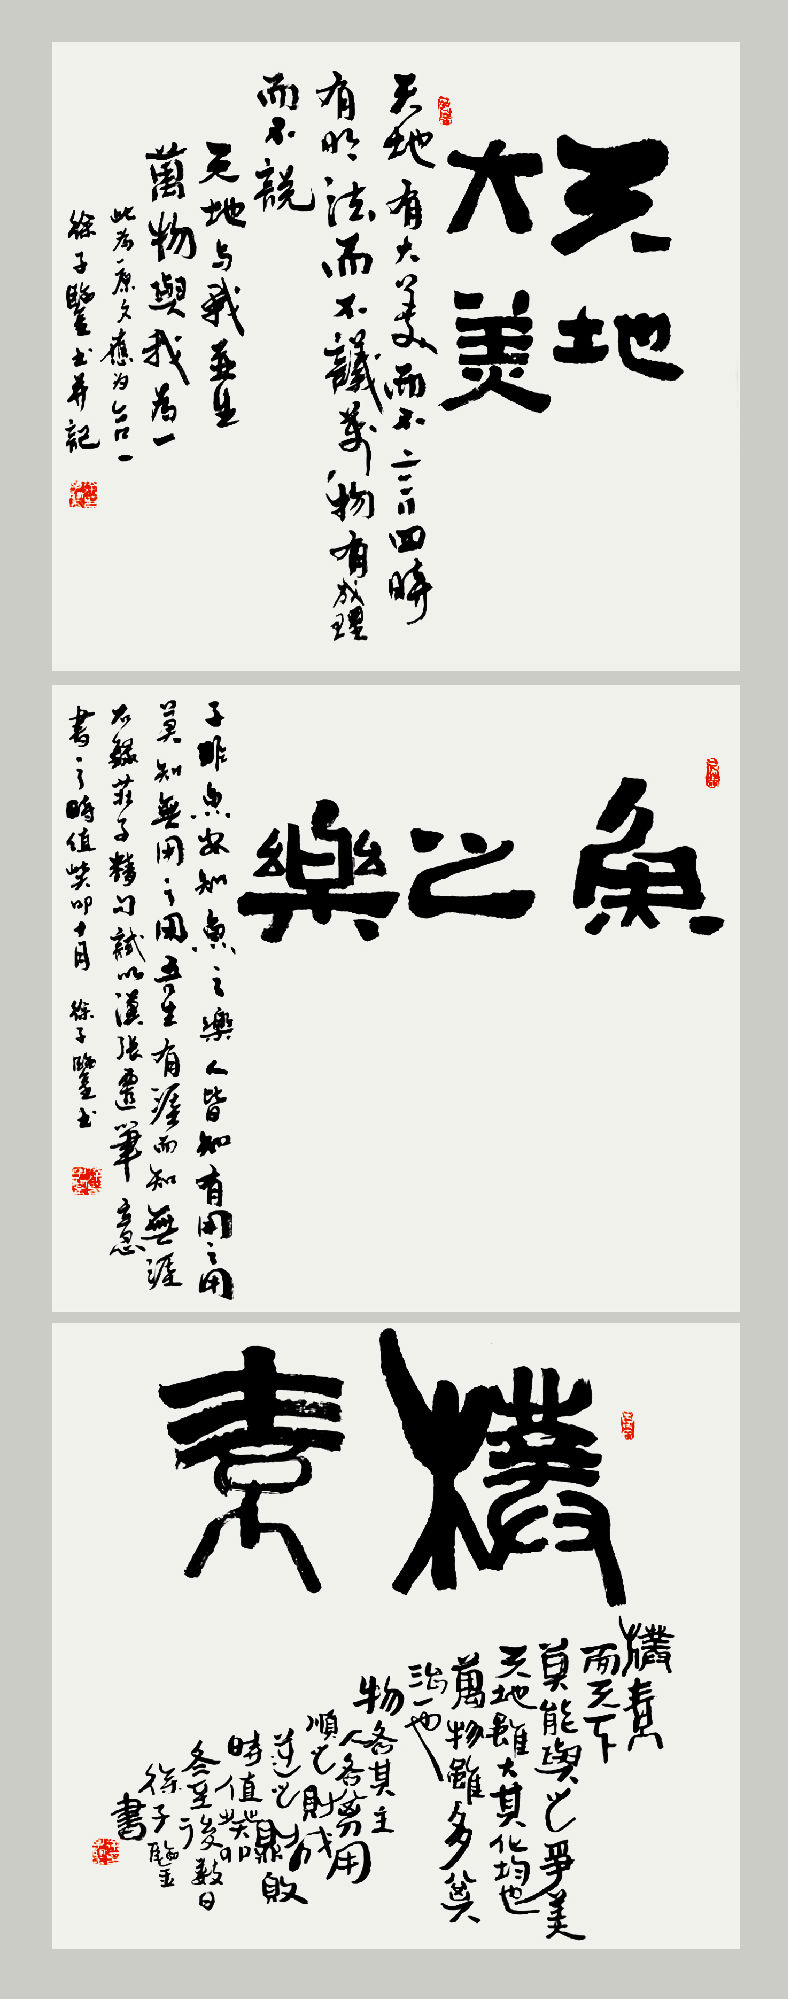 天地
大美
天地有大美而不言四時
有明法而不議萬物有成理
而不說
天地与我並生
萬物與我為一
此為原文應为合一
徐子鑒书并記
魚之樂
子非魚安知魚之樂人皆知有用之用
莫知無用之用吾生有涯而知無涯
右錄莊子精句試以漢張遷筆意
書之時值癸卯十月 徐子鑒书
樸素
樸素
而天下
莫能與之爭美
天地雖大其化均也
萬物雖多其
治一也
物各其主
人各其用
順之則成
逆之則敗
時值癸卯
冬至後數日
徐子鑒
書